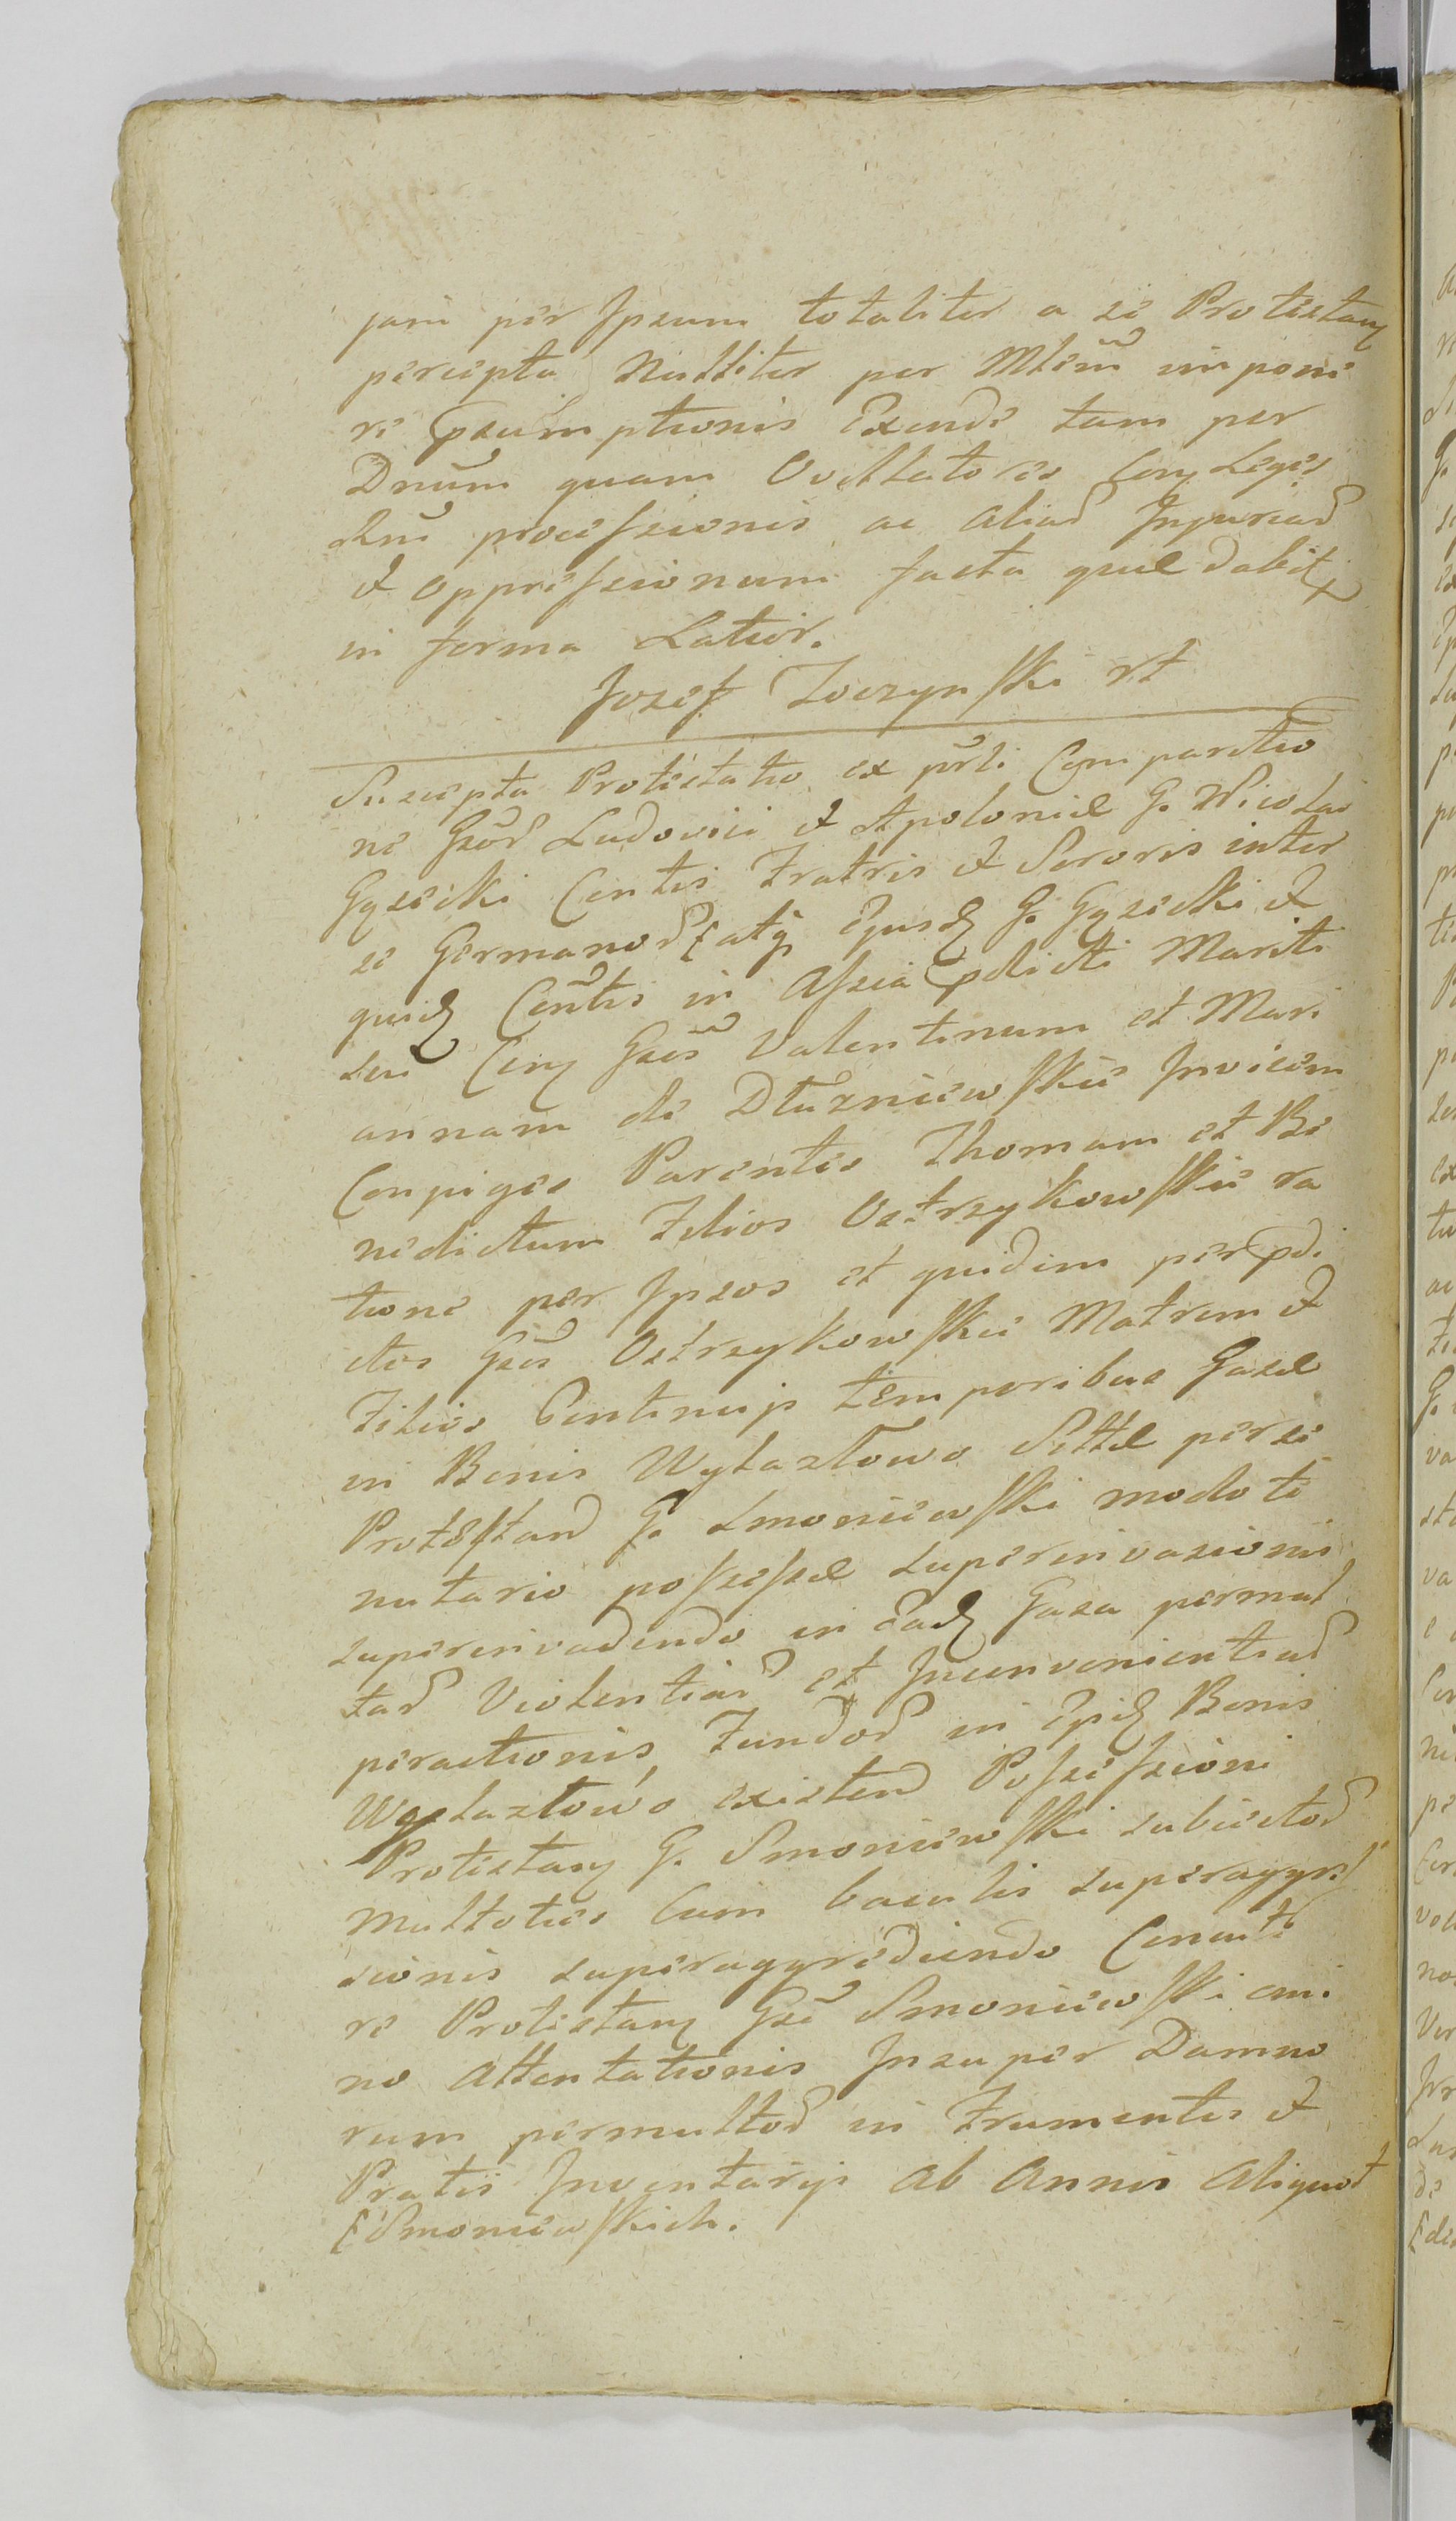 jam per Ipsum totaliter a se Protestan
percepta Nulliter per Mlem impone
re psumptionis Exinde tam per
Dnum quam Oblatores Con Leges
Rni processionis ac aliar Injuriar
et oppressionum facta quae dabit
in forma Latior.
Jozef Zoczynski rt
Suscepta Protestatio ex prli Comparitio
ne Gsor Ludovici et Apoloniae G. Nicolai
Gąsecki Contis Fratris et Sororis inter
se Germanor atq Ejusd G. Gąsecki et
quid Contis in Assia pdicti Mariti
sui Con Gsos Valentinum et Mari
annam de Dłuzniewskie Invicem
Conjuges Parentes Thomam et Be
nedictum Filios Ostrzykowskie ra
tione per Ipsos et quidem per pdi
ctos Gsos Ostrzykowskie Matrem et
Filios Continuis temporibus Gasae
in Bonis Wylazłowo Sittae per se
Protestan G. Smoniewski modo te
nutario possessae superinvasionis
superinvadendo in Ead Gasa permul
tar Violentiar et Inconvenientiar
peractionis, Fundor in Ijsd Bonis
Wylazłowo existen Possessioni
Protestan G. Smoniewski subiector
Multoties Cum baculis superaggres
sionis superaggrediendo Concute
re Protestan Gsu Smoniewski ani
mo attentationis Insuper Damno
rum permultor in Frumentis et
Pratis Inventarijs ab Annis Aliquot
Smoniewskich.